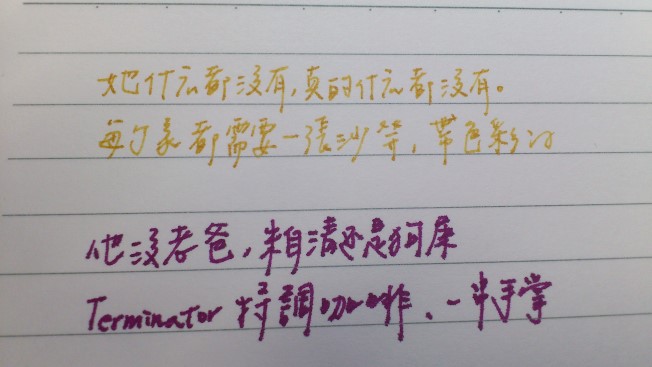 她什么都沒有,真的什么都沒有。
每个家都需要一張沙發,帶色彩的
他沒老爸,朱自清还是狗屎
Terminator 特調咖啡、一半手掌